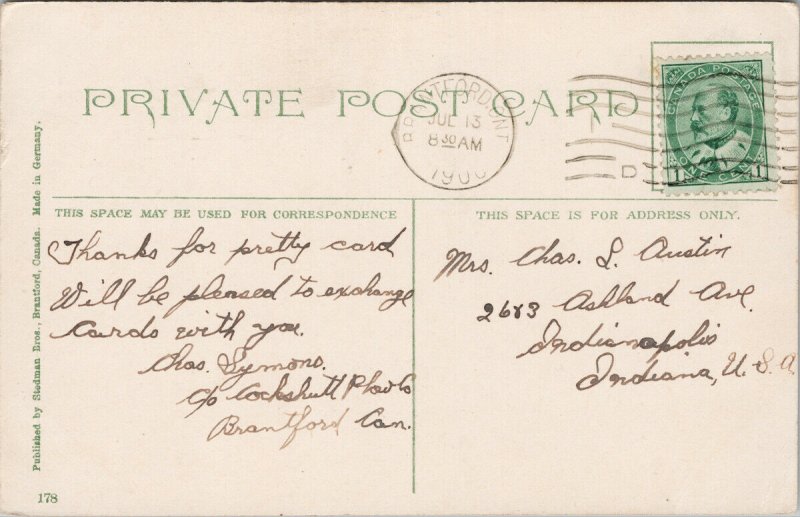 PRIVATE POST CARD
BRANTFORD, ONT
JUL 13
8 30 AM
CANADA POSTAGE
1 ONE CENT 1
THIS SPACE MAY BE USED FOR CORRESPONDENCE
Thanks for pretty card
Will be pleased to exchange
Cards with you.
Chas. Symons.
c/o Cockshutt Plow Co
Brantford Can.
THIS SPACE IS FOR ADDRESS ONLY.
Mrs. Chas. L. Austin
Ashland Ave.
Indianapolis
Indiana, U. S. A.
Published by Stedman Bros., Brantford, Canada. Made in Germany.
178